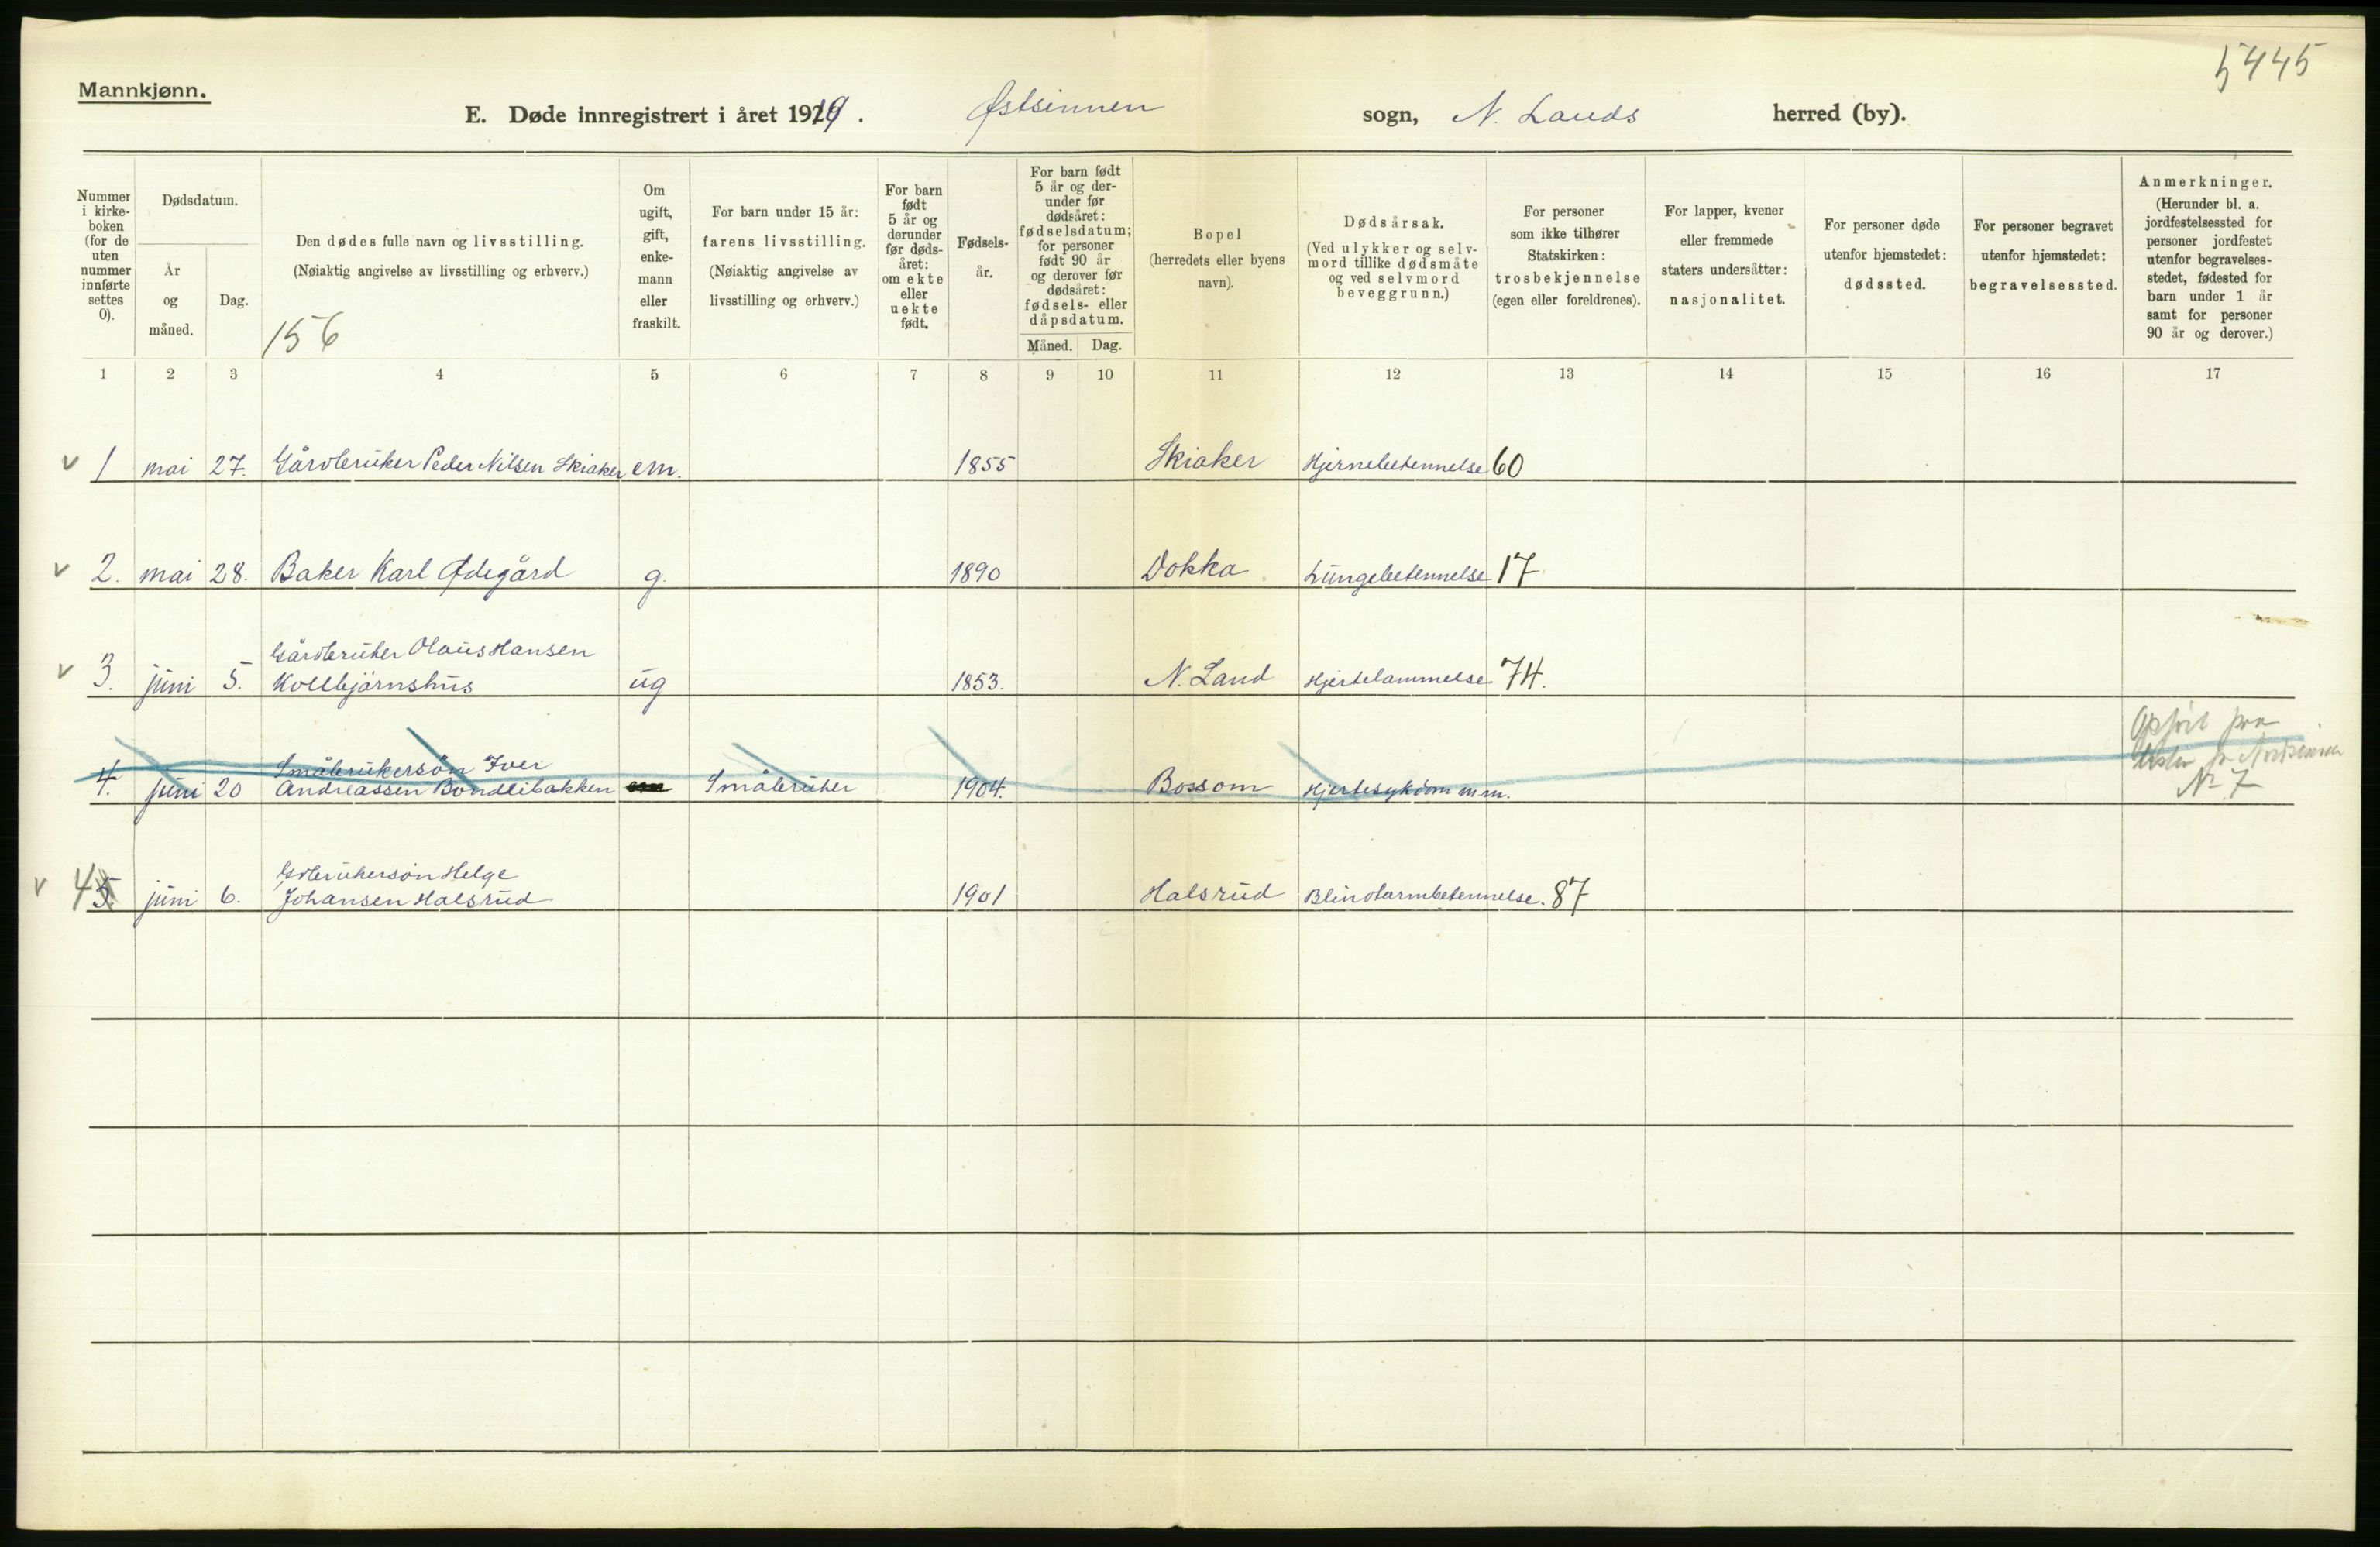 5445
Mannkjønn.
E. Døde innregistrert i året 1919. Østsinnen sogn, N. Lands herred (by).
Nummer i kirke-boken (for de uten nummer innførte settes 0).
Dødsdatum.
År og måned.
Dag.
Den dødes fulle navn og livsstilling.
(Nøiaktig angivelse av livsstilling og erhverv.)
156
Om ugift, gift, enke-mann eller fraskilt.
For barn under 15 år:
farens livsstilling.
(Nøiaktig angivelse av
livsstilling og erhverv.)
For barn født 5 år og derunder før døds-året: om ekte eller uekte født.
Fødsels-
år.
For barn født 5 år og der-under før dødsåret: fødselsdatum; for personer født 90 år og derover før dødsåret: fødsels- eller dåpsdatum.
Måned. Dag.
Bopel
(herredets eller byens
navn).
Dødsårsak.
(Ved ulykker og selv-
mord tillike dødsmåte
og ved selvmord
beveggrunn.)
For personer
som ikke tilhører
Statskirken:
trosbekjennelse
(egen eller foreldrenes).
For lapper, kvener
eller fremmede
staters undersåtter:
nasjonalitet.
For personer døde
utenfor hjemstedet:
dødssted.
For personer begravet
utenfor hjemstedet:
begravelsessted.
Anmerkninger.
(Herunder bl. a.
jordfestelsessted for
personer jordfestet
utenfor begravelses-
stedet, fødested for
barn under 1 år
samt for personer
90 år og derover.)
1 2 3 4 5 6 7 8 9 10 11 12 13 14 15 16 17
v 1 mai 27. Gårdbruker Peder Nilsen Skiaker em. 1855 Skiaker Hjernebetennelse 60
v 2. mai 28. Baker Karl Ødegård g. 1890 Dokka Lungebetennelse 17
Gårdbruker Olaus Hansen
v 3. juni 5. Kolbjørnshus ug 1853. N. Land Hjertelammelse 74.
Opført på
Småbrukersøn Iver
4. juni 20 Andreassen Bondlibakken em Småbruker 1904. Bossom Hjertesykdom m.m.
Nr 7
Gdbrukersøn Helge
v 4 5. juni 6. Johansen Halsrud 1901 Halsrud Blindtarmbetennelse. 87